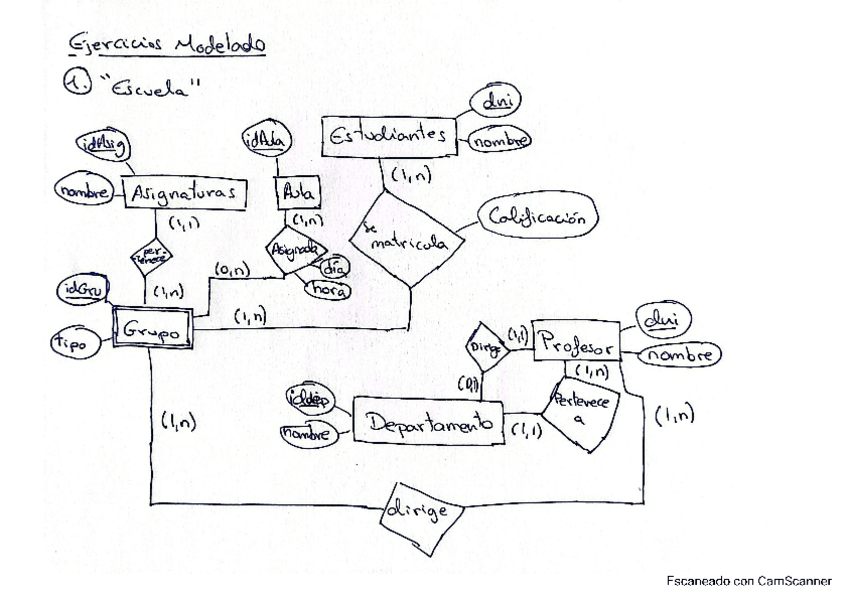 Ejercicios Modelado
1. "Escuela"
dni
Estudiantes
nombre
idAsig
idAula
nombre
Asignaturas
Aula
(1,n)
Calificación
(1,1)
(1,n)
se
matricula
per-
tenece
Asignada
(0,n)
día
idGru
(1,n)
hora
Grupo
(1,n)
tipo
dni
Dirige
(1,1)
Profesor
nombre
(0,1)
(1,n)
iddep
Pertenece
a
nombre
Departamento
(1,1)
(1,n)
(1,n)
dirige
Escaneado con CamScanner